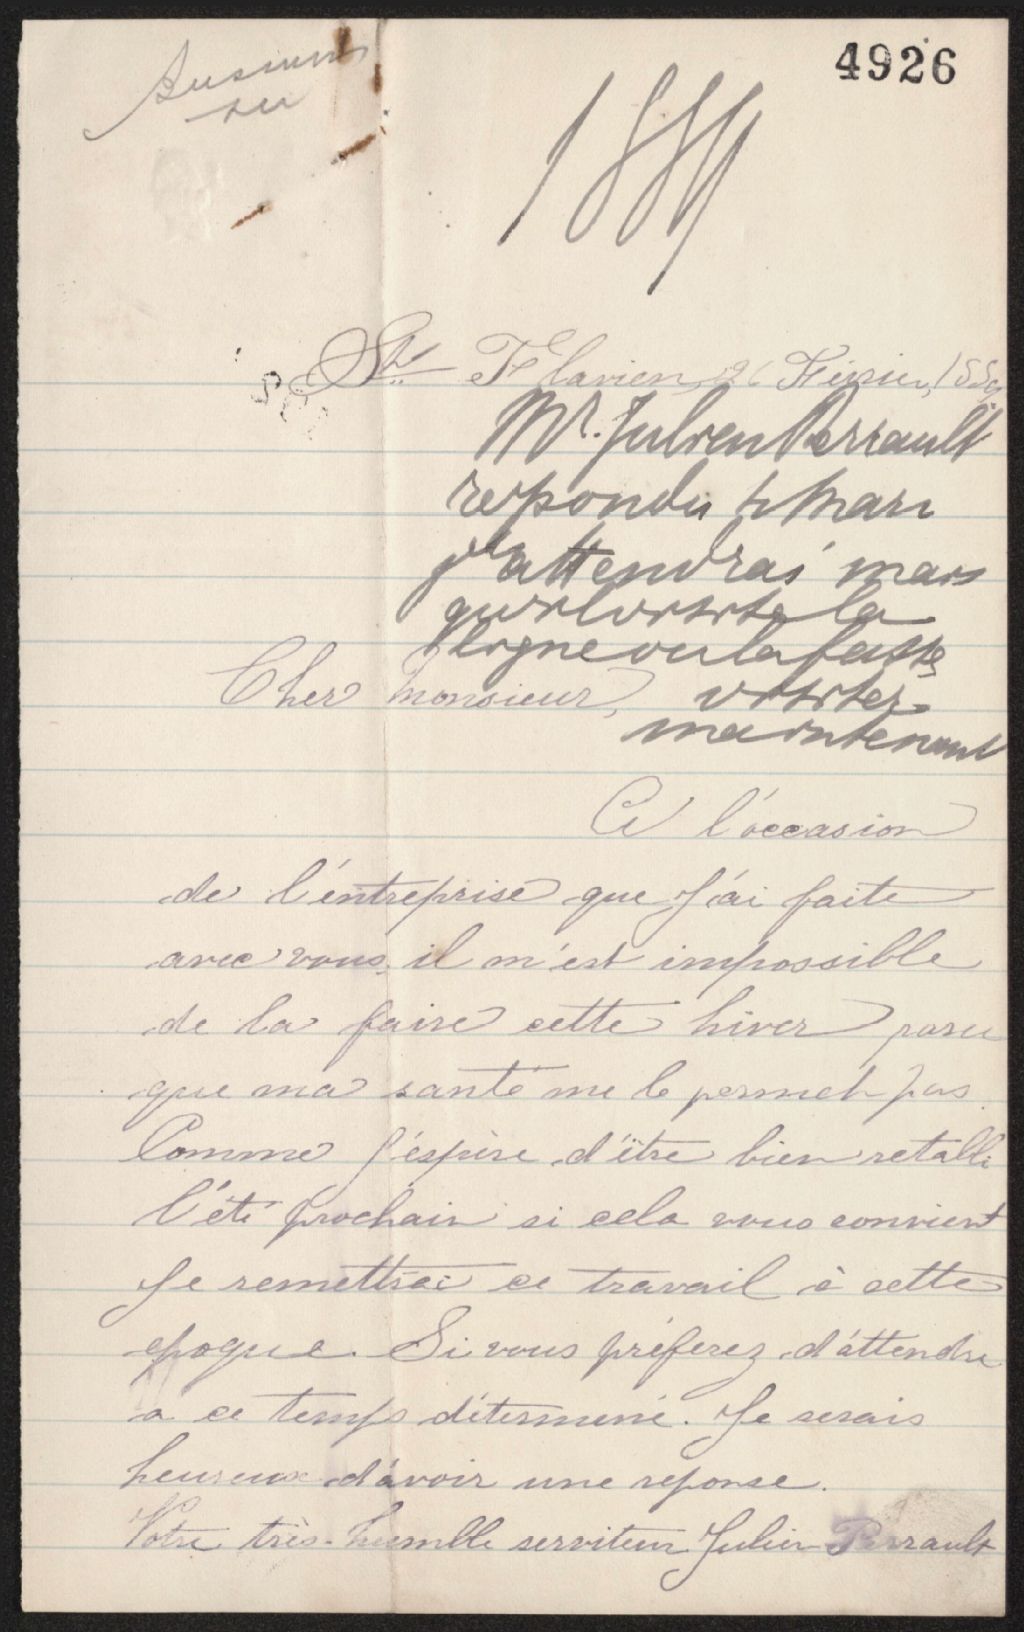 4926
1889
St. Flavien, 26 Février, 1889
Mr. Julien Perrault
repondu 4 Mars
j'attendrai mais
qu'il visite la
ligne ou la fasse
visiter
maintenant
Cher Monsieur,
A l'occasion
de l'éntreprise que J'ai faite
avec vous, il m'est impossible
de la faire cette hiver parce
que ma santé me le permet pas.
Comme J'éspère d'être bien retabli
l'été prochain si cela vous convient
Je remettrai ce travail à cette
époque. Si vous préferez d'attendre
a ce temps déterminé. Je serais
heureux d'avoir une réponse.
Votre très-humble serviteur Julien Perrault